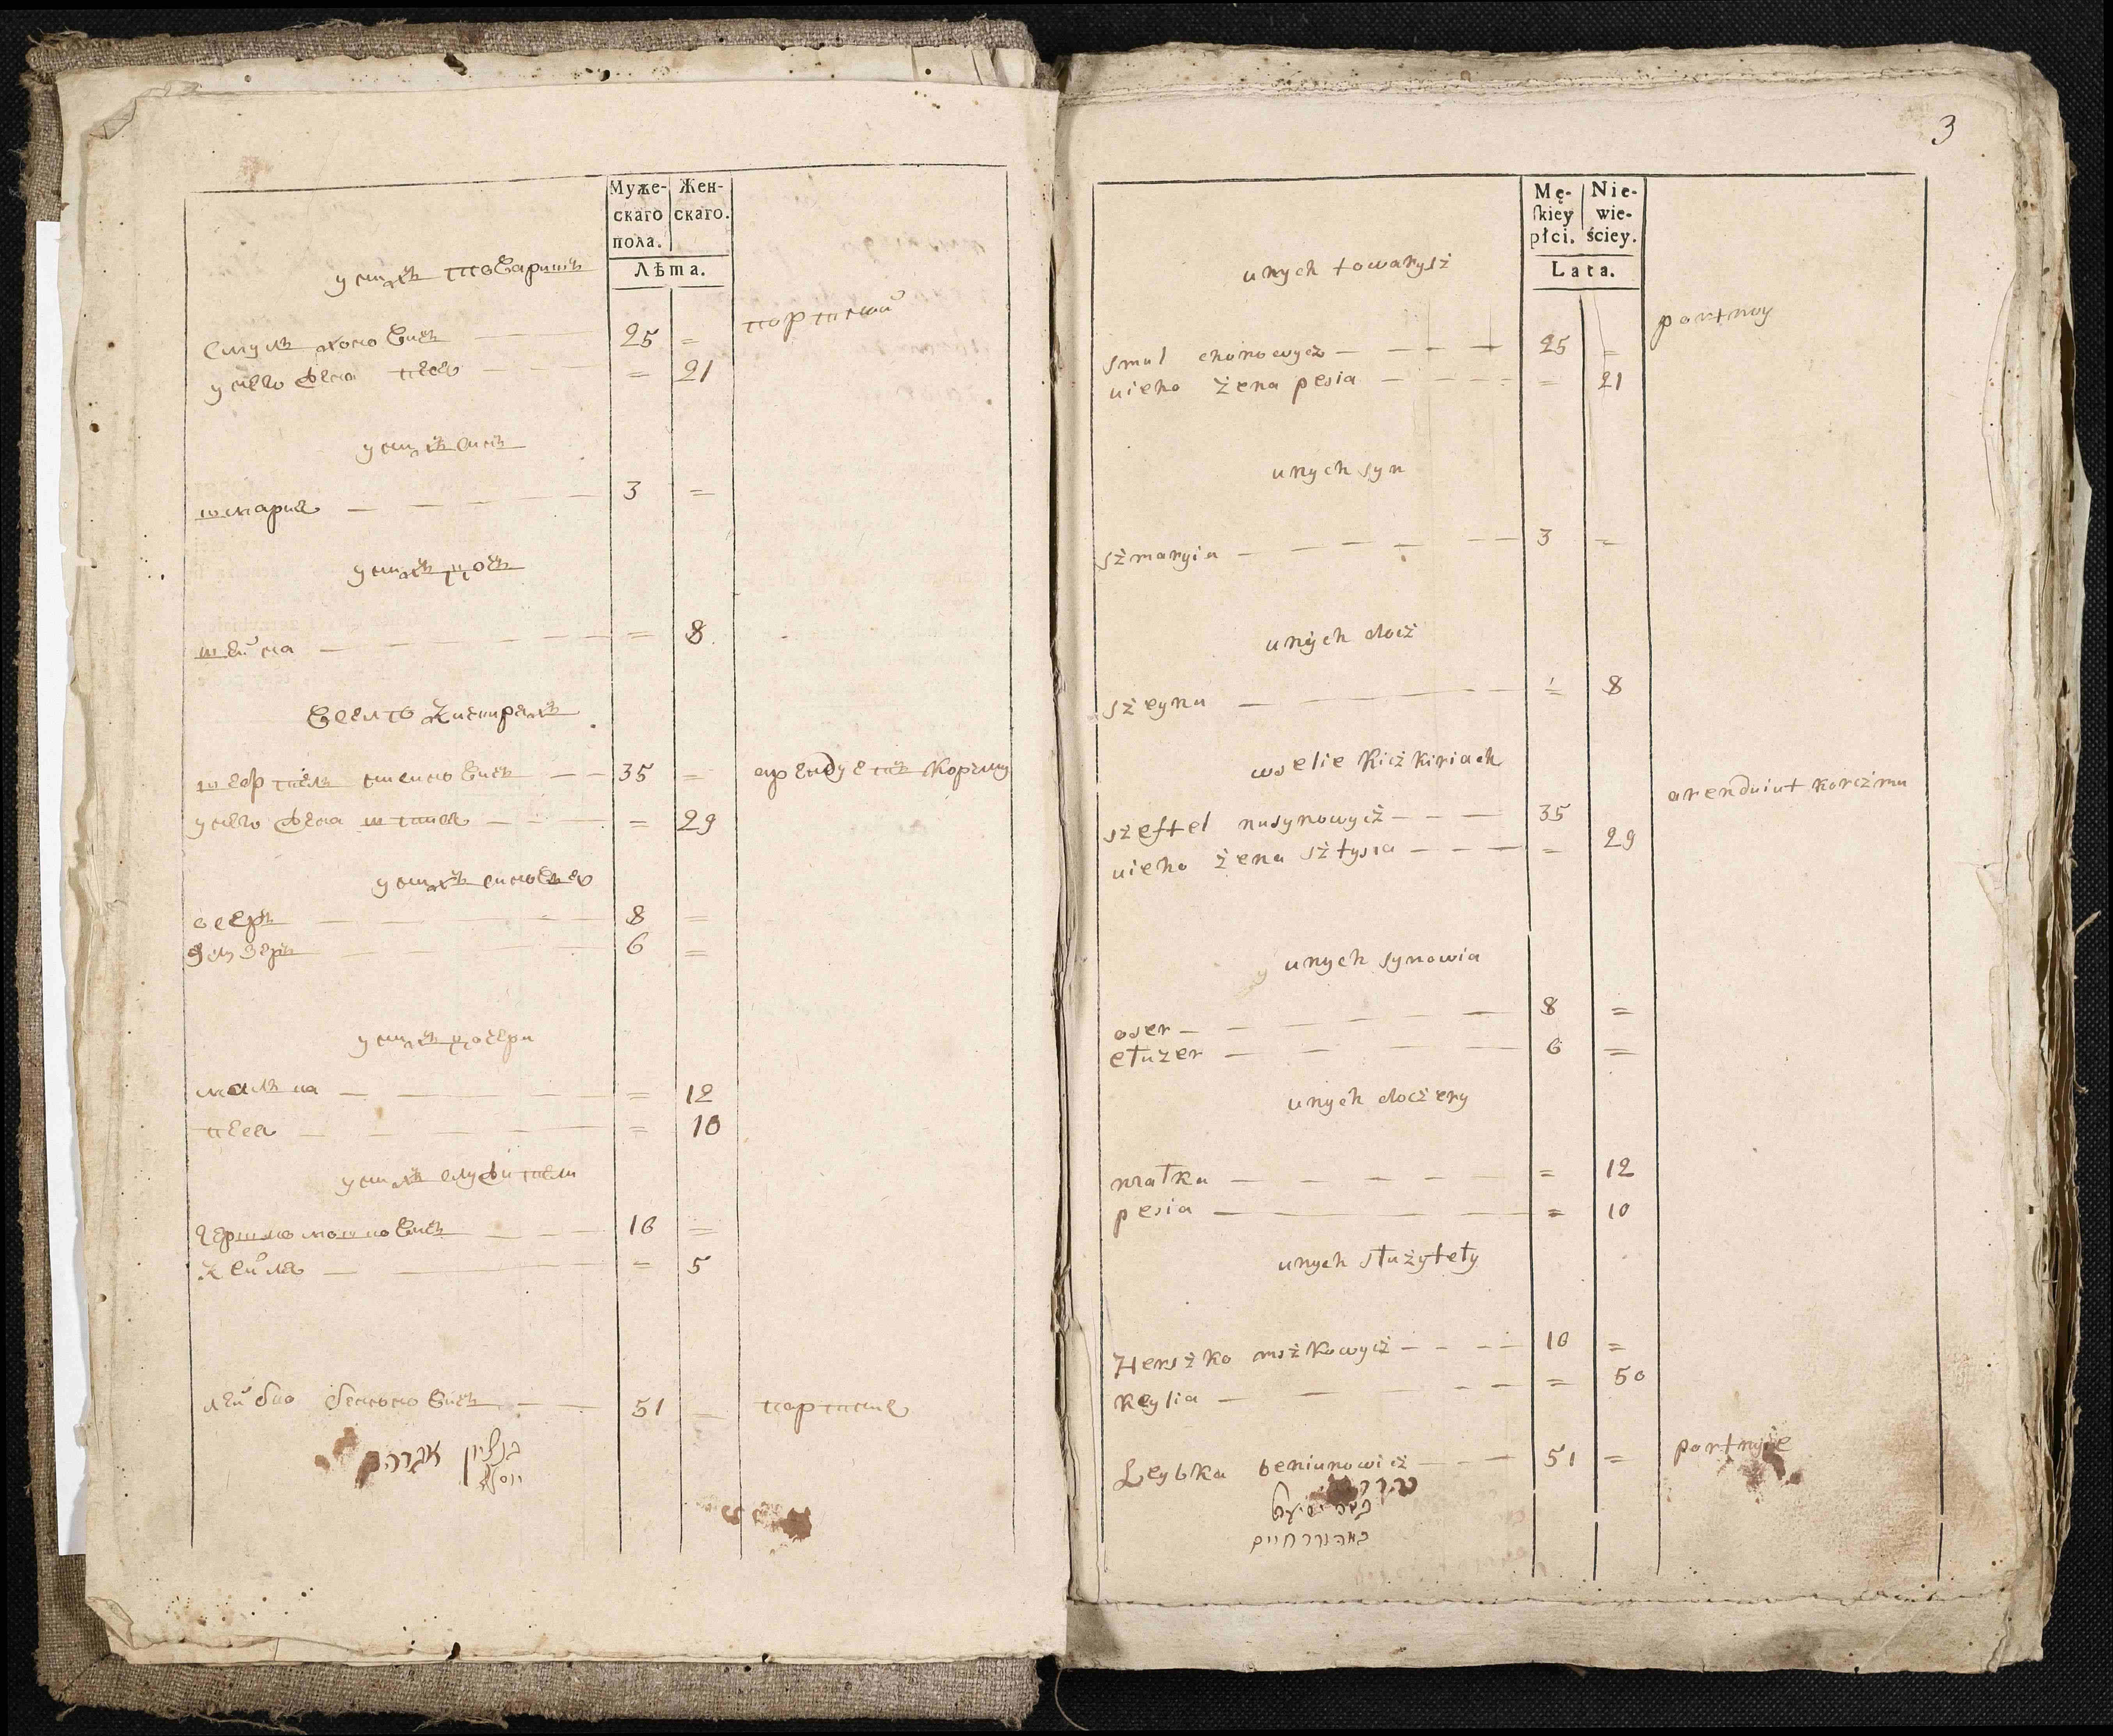 Муже-
скаго
пола.
Жен-
скаго.
Лѣта.
у нихъ товаришъ
Смуль хоновичъ — — 25 = портной
у него жена песа — — = 21
у нихъ синъ
шмария — — — — 3 =
у нихъ дочъ
шейна — — — — = 8
Вселѣ
шефтель — — 35 = арендуетъ корчму
у него жена — — = 29
у нихъ синовя
осеръ — — — 8 =
елзеръ — — — 6 =
у нихъ дочери
малка — — — = 12
песя — — — = 10
у нихъ служители
гершко мошковичъ — — 10 =
кейля — — — = 5
лейбка — — 51 = портние
בנציון אברהם
יוסף
3
Mę-
ſkiey
płci.
Nie-
wie-
ściey.
Lata.
unych towarysż
smul chonowycz — — — 25 = portnoy
uieho żena pesia — — — = 21
unych syn
sżmaryia — — — — 3 =
unych docż
sżeyna — — — = 8
wselie Kicżkiriach
sżeftel nusynowycż — — — 35 arenduiut korcżmu
uieho żena sżtysia — — — = 29
y unych synowia
oser — — — — 8 =
ełuzer — — — 6 =
unych docżery
małka — — — — = 12
pesia — — — = 10
unych służyteły
Hersżko mżkowycż — — — 10 =
Keylia — — — = 50
Leybka beniunowicż — — — 51 = portnyie
חיים